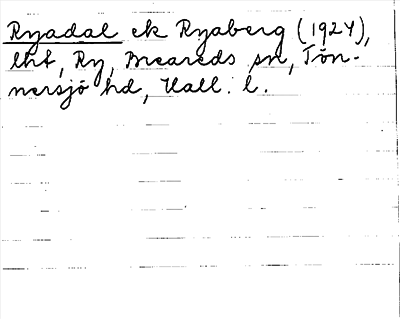 Ryadal ek Ryaberg (1924),
lht, Ry, Breareds sn, Tön-
nersjö hd, Hall. l.